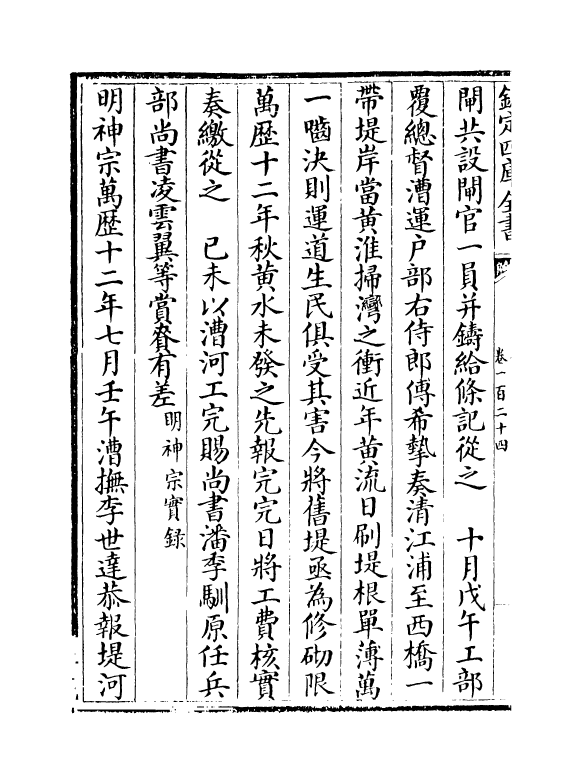 欽定四庫全書
卷一百二十四
閘共設閘官一員并鑄給條記從之　十月戊午工部
覆總督漕運户部右侍郎傅希摯奏清江浦至西橋一
帶堤岸當黄淮掃灣之衝近年黄流日刷堤根單薄萬
一囓決則運道生民俱受其害今將舊堤亟為修砌限
萬歴十二年秋黄水未發之先報完完日將工費核實
奏繳從之　已未以漕河工完賜尚書潘季馴原任兵
部尚書凌雲翼等賞賚有差明神宗實録
明神宗萬歴十二年七月壬午漕撫李世達恭報堤河